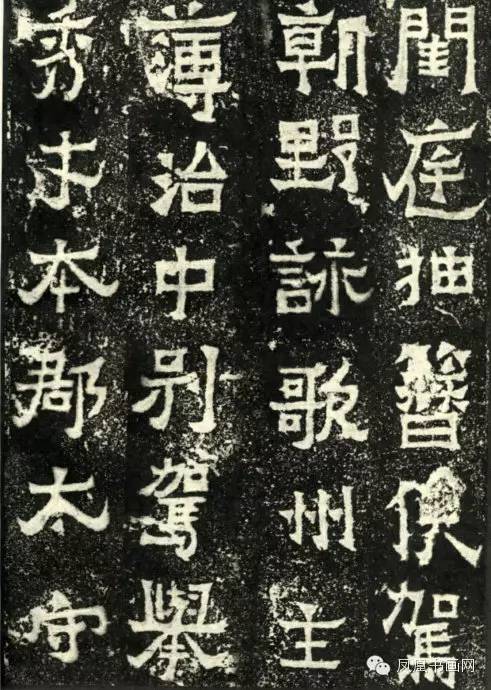 閨庭抽簪俟駕
朝野詠歌州主
簿治中別駕舉
秀才本郡太守
凤凰书画网